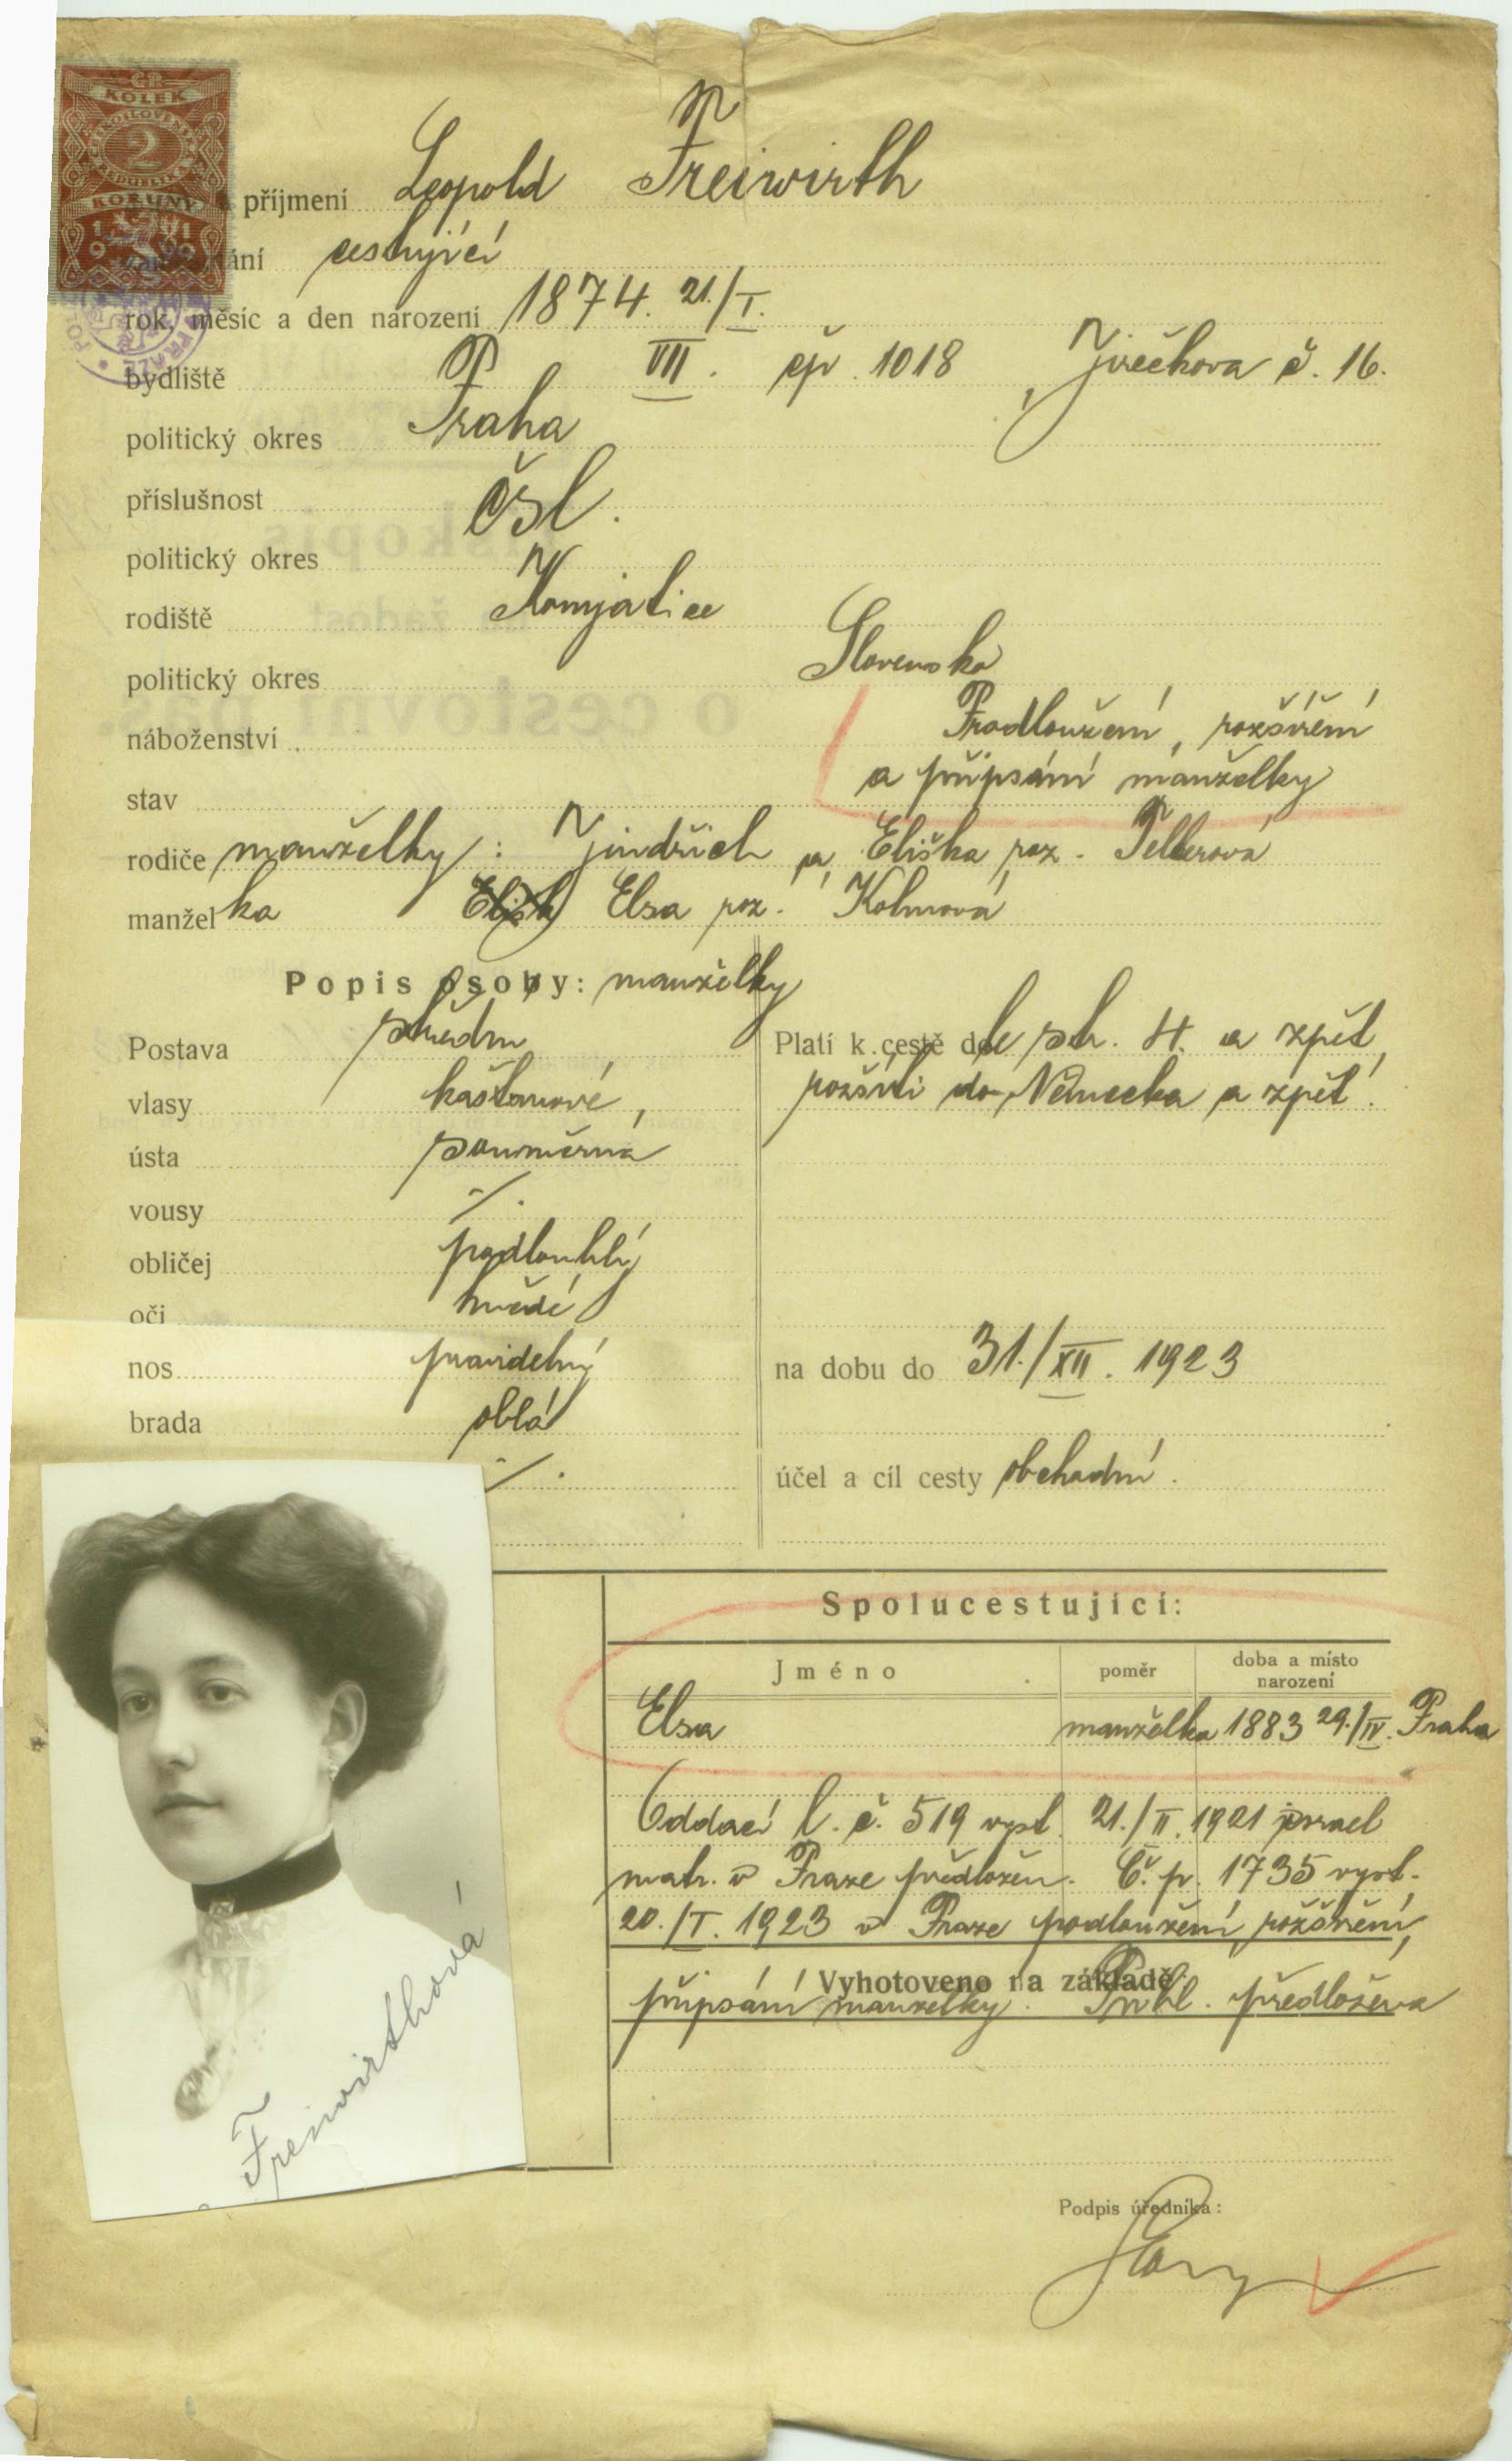 ČR
KOLEK
ČESKOSLOVENSKÁ
2
REPUBLIKA
KORUNY
1919
příjmení Leopold Freiwirth
cestující
rok, měsíc a den narození 1874. 21./I.
bydliště VII. čp. 1018, Jirečkova č. 16.
politický okres Praha
příslušnost čsl.
politický okres
rodiště Komjatice
politický okres Slovensko
náboženství Prodloužení, rozšíření
stav a připsání manželky
rodiče manželky: Jindřich a Eliška roz. Tellerová
manžel ka Elsa roz. Kohnová
Popis osoby: manželky
Postava střední
vlasy kaštanové,
ústa souměrná
vousy ./.
obličej podlouhlý
oči hnědé
nos pravidelný
brada oblá
./.
Platí k cestě do le str. 4. a zpět,
rozšířiti do Německa a zpět.
na dobu do 31./XII. 1923
účel a cíl cesty obchodní.
Spolucestující:
Jméno poměr doba a místo narození
Elsa manželka 1883 29./IV. Praha
Oddací l. č. 519 vyst. 21./II. 1921 israel
matr. v Praze předložen. Č. p. 1735 vyst.
20./I. 1923 v Praze prodloužení, rozšíření,
Vyhotoveno na základě
připsání manželky. předložena
Freiwirthová
Podpis úředníka: